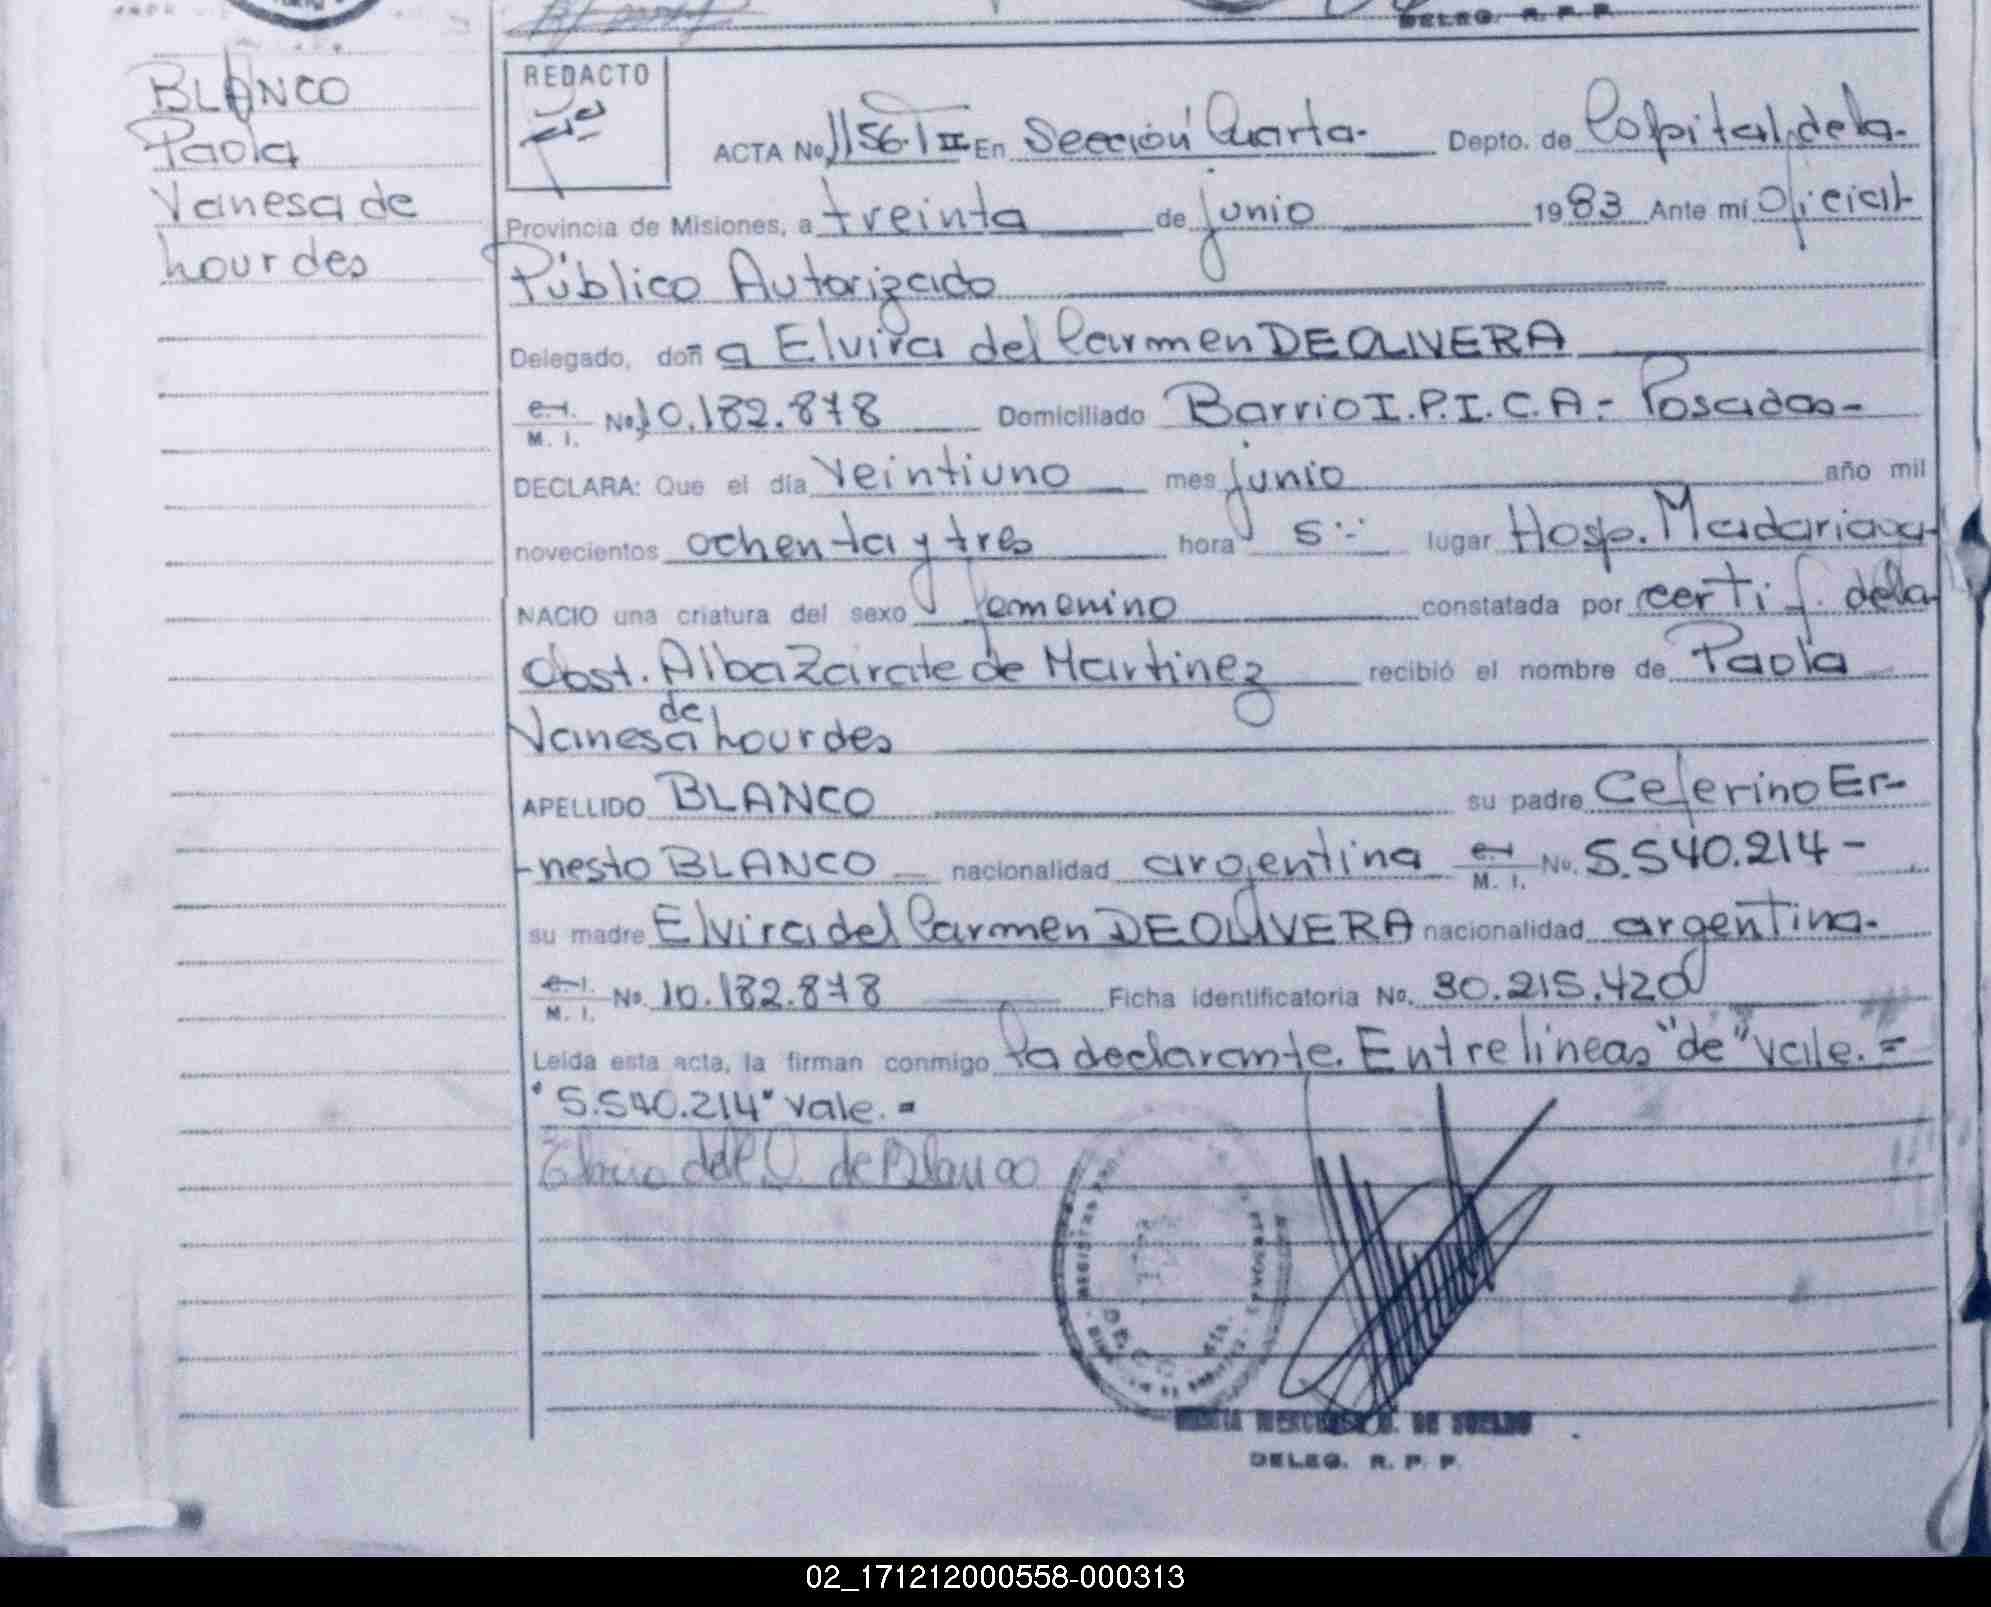 DELEG. R. P. P.
BLANCO
Paola
Vanesa de
Lourdes
REDACTO
ACTA No. 1156.T II En Sección Cuarta.- Depto. de Capital, de la-
Provincia de Misiones, a treinta de junio 1983 Ante mí Oficial-
Público Autorizado
Delegado, doñ a Elvira del Carmen DE OLIVERA
c.i. M. I. No. 10.182.878 Domiciliado Barrio I.P.I.C.A.- Posadas-
DECLARA: Que el día veintiuno mes junio año mil
novecientos ochenta y tres hora 5 lugar Hosp. Madariaga-
NACIO una criatura del sexo femenino constatada por certif. de la
Obst. Alba Zarate de Martinez recibió el nombre de Paola
de
Vanesa Lourdes
APELLIDO BLANCO su padre Ceferino Er-
-nesto BLANCO nacionalidad argentina c.i. M. I. No. 5.540.214-
su madre Elvira del Carmen DE OLIVERA nacionalidad argentina.
c.i. M. I. No. 10.182.878 Ficha identificatoria No. 30.215.420
Leída esta acta, la firman conmigo la declarante. Entre líneas "de" vale.=
"5.540.214" vale.=
de Blanco
DELEG. R. P. P.
02_171212000558-000313